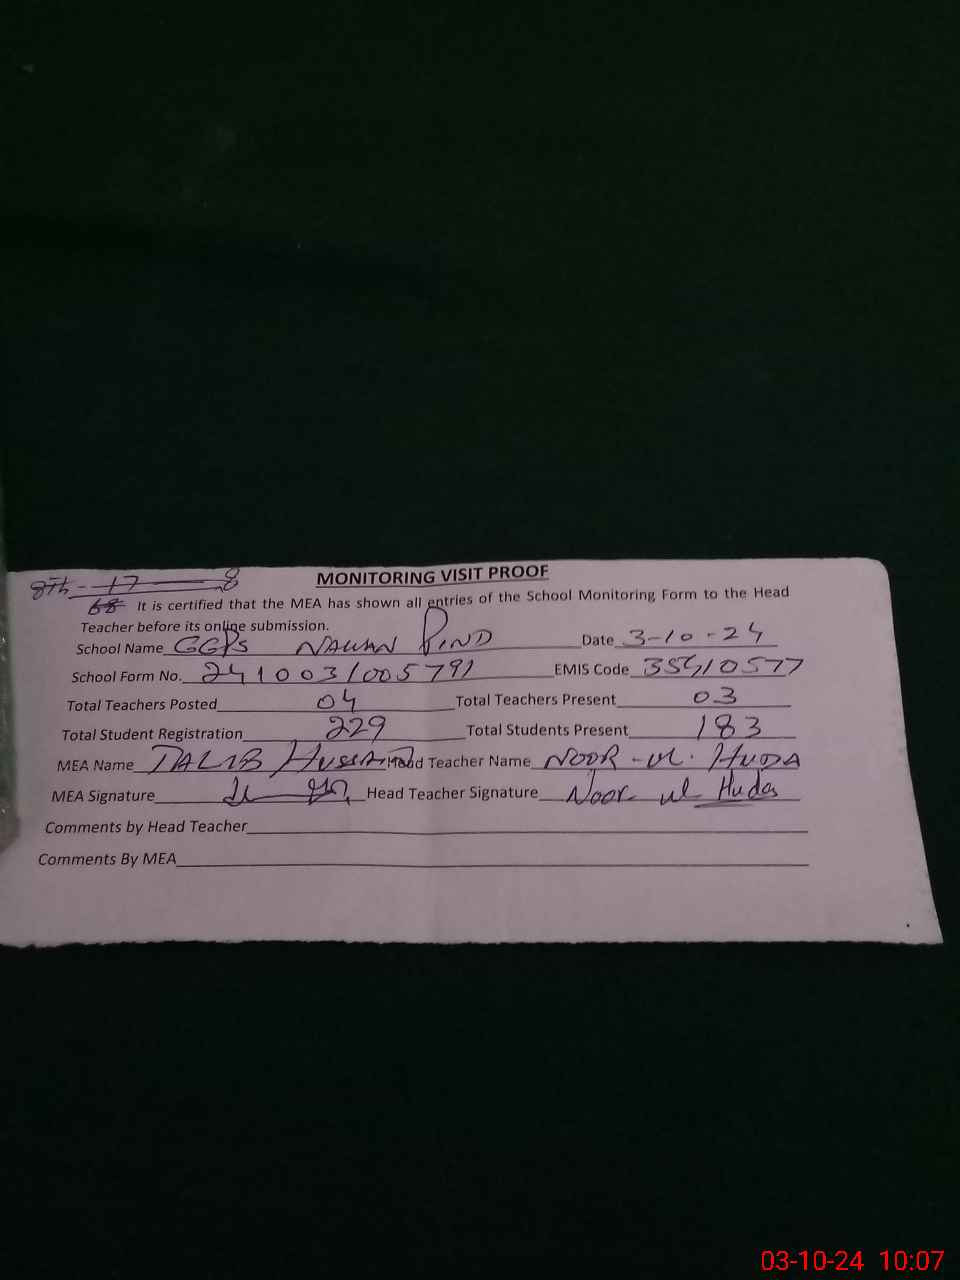 8th - 17 8
MONITORING VISIT PROOF
68 It is certified that the MEA has shown all entries of the School Monitoring Form to the Head
Teacher before its online submission.
School Name GGPS NAWAN PIND Date 3-10-24
School Form No. 241003/005791 EMIS Code 35410577
Total Teachers Posted 04 Total Teachers Present 03
Total Student Registration 229 Total Students Present 183
MEA Name TALIB HUSSAIN Head Teacher Name NOOR-ul. HUDA
MEA Signature Head Teacher Signature Noor ul Huda
Comments by Head Teacher
Comments By MEA
03-10-24 10:07